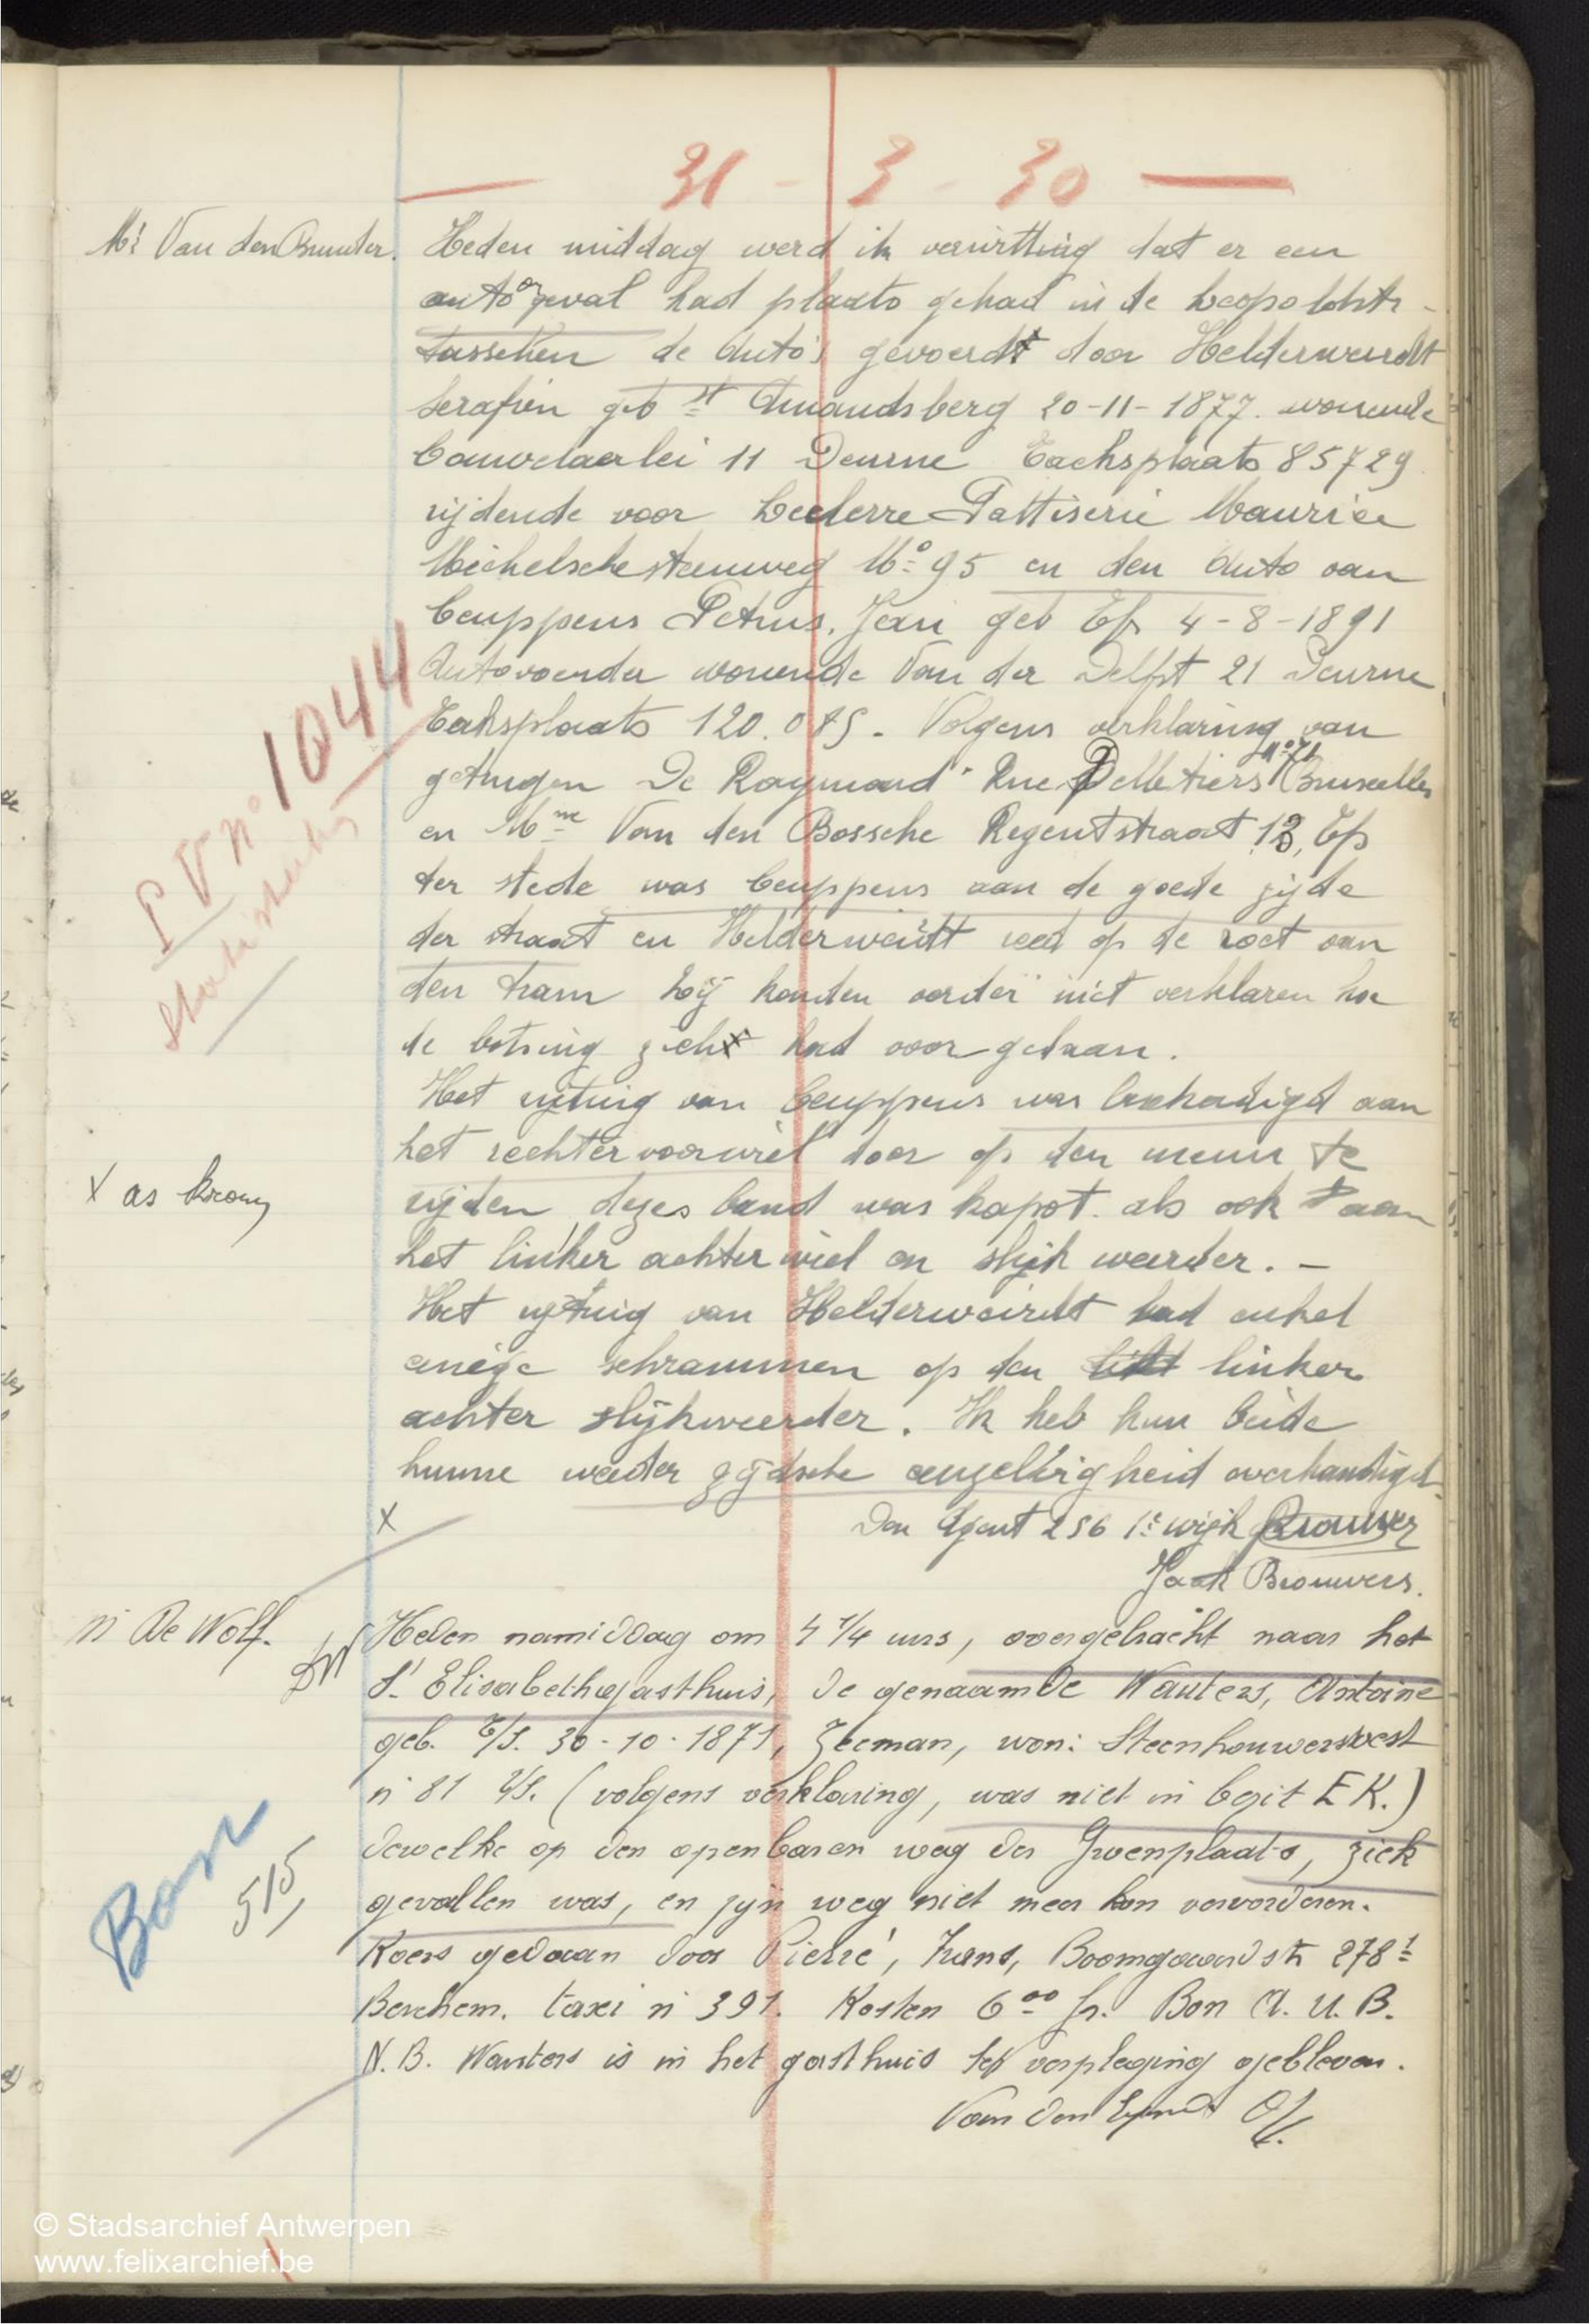 31 - 3 - 30
Heden middag werd ik verwittiig dat er een
auto ongeval had plaats gehad in de Leopoldstr -
tusschen de Auto's gevoerdt door Helderweirdt
Serafien geb st Amandsberg 20-11-1877. wonende
Cauwelaerlei 11 Deurne Taeksplaats 85729
rijdende voor Lecterre Pattiserie Maurice
Mechelschesteenweg No 95 en den Auto van
Ceuppens Petrus, Jean geb Ef 4-8-1891
Autovoerder wonende Van der Delft 21 Deurne
Taksplaats 120.085. Volgens verklaring van
getuigen De Raymond Rue Pelletiers No 71 Bruxelles
en Mme Van den Bossche Regentstraat 13, Ef
ter stede was Ceuppens aan de goede zijde
der straat en Helderweirdt reed op de roet van
den tram Zij konden verder niet verklaren hoe
de botsing zich had voor gedaan.
Het rijtuig van Ceuppens was beschadigd aan
het rechter voorwiel door op den muur te
rijden, dezes band was kapot. als ook aan
het linker achter wiel en slijk weerder. -
Het rijtuig van Helderweirdt had enkel
enige schrammen op den linker
achter slijkweerder. Ik heb hun beide
hunne weder zijdsche eenzelvigheid overhandigd.
Den Agent 256 1e wijk Brouwers
Jaak Brouwers.
Mr Van den
P V no 1044
X as krom
X
n De Wolf.
DW
Heden namiddag om 4 1/4 uurs, overgebracht naar het
St Elisabethgasthuis, de genaamde Wauters, Antoine
geb. T/S. 30-10-1871, Zeeman, won: Steenhouwersvest
n 81 T/S. (volgens verklaring, was niet in bezit E K.)
dewelke op den openbaren weg der Groenplaats, ziek
gevallen was, en zijn weg niet meer kon vervorderen.
Koers gedaan door Pierré, Frans, Boomgaardstr 278 1
Berchem. taxi n 391. Kosten 6 00 fr. Bon A. U. B.
N.B. Wauters is in het gasthuis ter verpleging gebleven.
Van den Eynde
Bon
515
© Stadsarchief Antwerpen
www.felixarchief.be